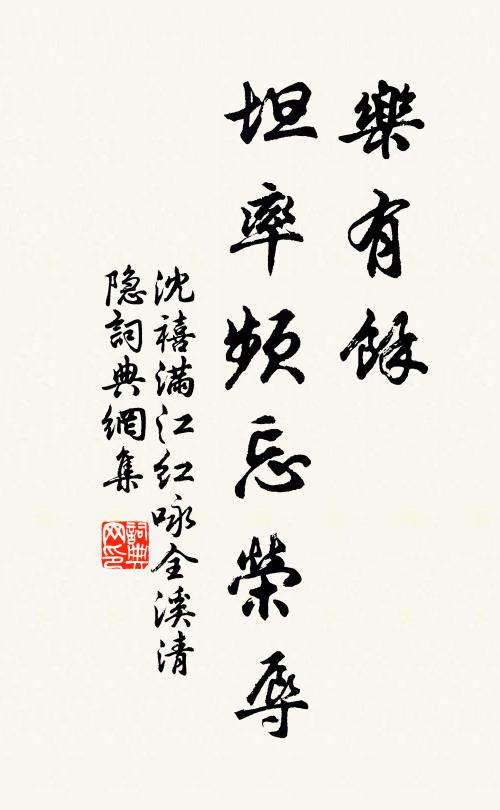 樂有餘
坦率頻忘榮辱
沈禧满江红咏全溪清
隐詞典網集
詞典网印